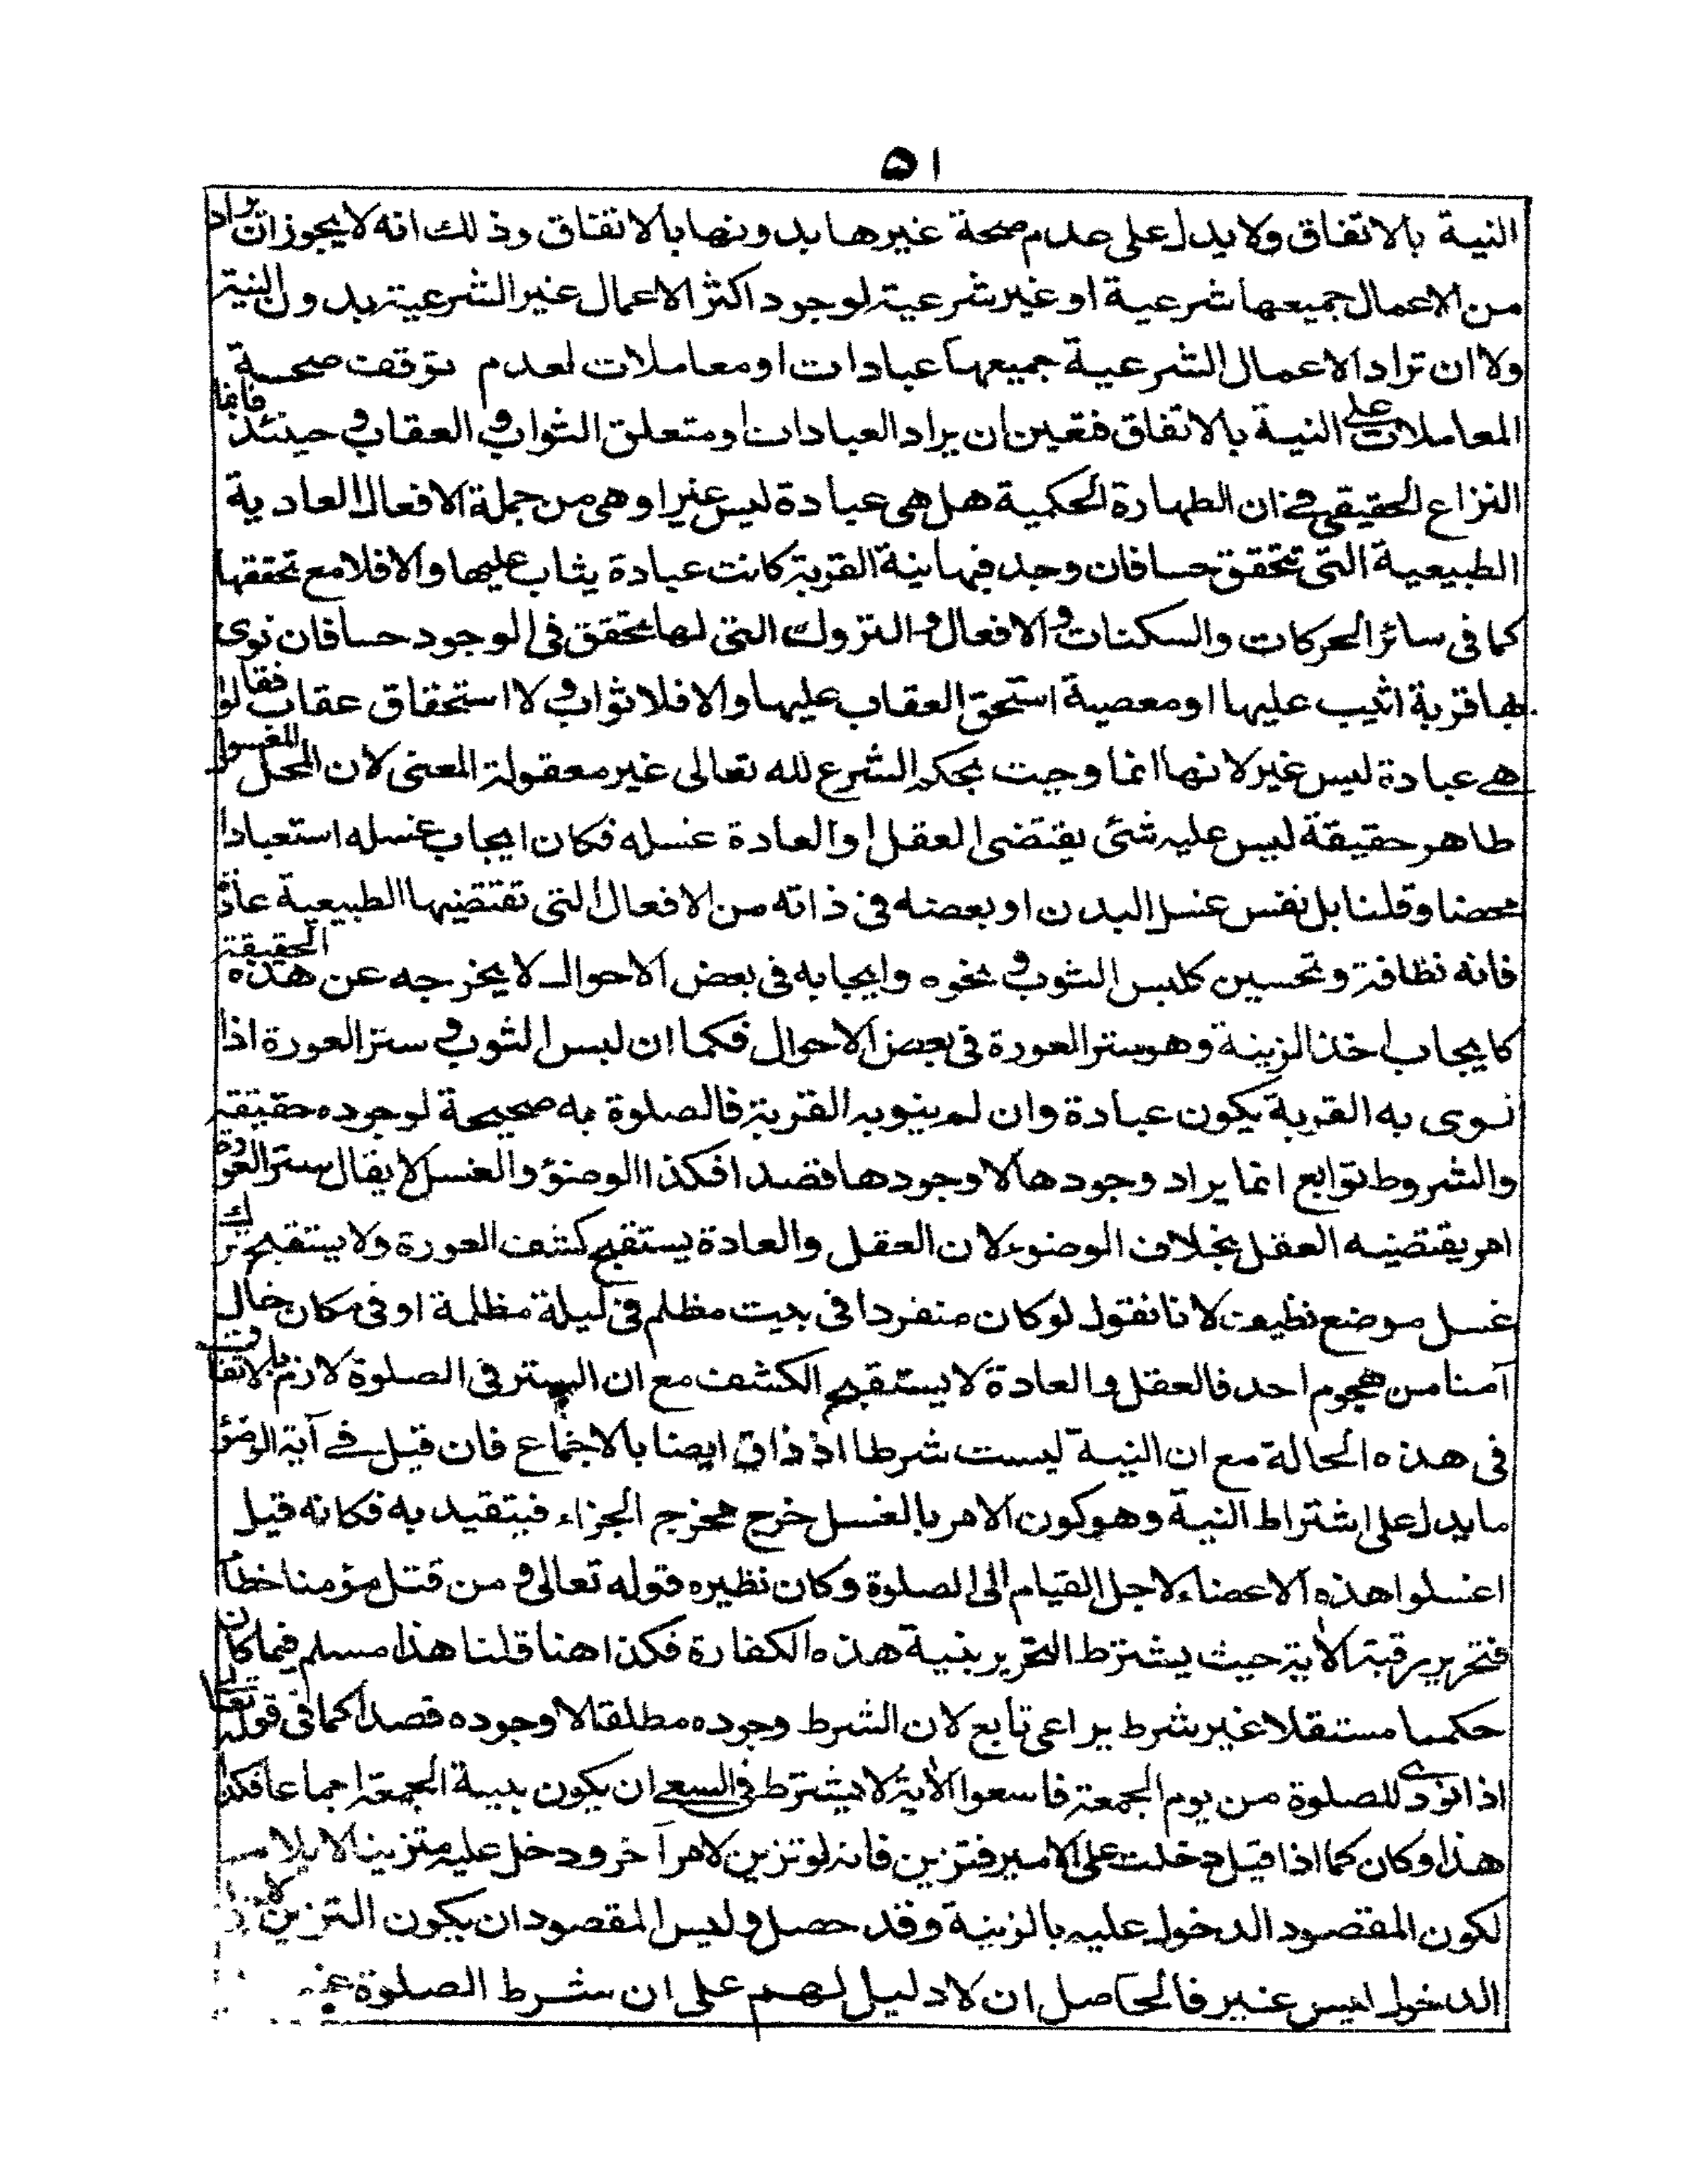 ٥١
النية بالاتفاق ولا يدل على عدم صحة غيرها بدونها بالاتفاق وذلك انه لا يجوز ان يراد
من الاعمال جميعها شرعية او غير شرعية لوجود اكثر الاعمال غير الشرعية بدون النية
ولا ان تراد الاعمال الشرعية جميعها عبادات او معاملات لعدم توقف صحة
المعاملات على النية بالاتفاق فتعين ان يراد العبادات او متعلق الثواب والعقاب وحينئذ فانما
النزاع الحقيقي في ان الطهارة الحكمية هل هى عبادة ليس غير او هى من جملة الافعال العادية
الطبيعية التى تتحقق حسا فان وجد فيها نية القربة كانت عبادة يثاب عليها والا فلا مع تحققها
كما فى سائر الحركات والسكنات والافعال والتروك التى لها تحقق فى الوجود حسا فان نوى
بها قربة اثيب عليها او معصية استحق العقاب عليها والا فلا ثواب ولا استحقاق عقاب فقالو
هے عبادة ليس غير لانها انما وجبت بحكم الشرع لله تعالى غير معقولة المعنى لان المحل المغسول
طاهر حقيقة ليس عليه شئ يقتضى العقل او العادة غسله فكان ايجاب غسله استعبادا
محضا وقلنا بل نفس غسل البدن او بعضه فى ذاته من الافعال التى تقتضيها الطبيعية عادة
فانه نظافة وتحسين كلبس الثوب ونحوه وايجابه فى بعض الاحوال لا يخرجه عن هذه الحقيقة
كايجاب اخذ الزينة وهو ستر العورة فى بعض الاحوال فكما ان لبس الثوب وستر العورة اذا
نوى به القربة يكون عبادة وان لم ينو به القربة فالصلوة به صحيحة لوجوده حقيقة
والشروط توابع انما يراد وجودها لا وجودها قصدا فكذا الوضوء والغسل لا يقال ستر العورة
امر يقتضيه العقل بخلاف الوضوء لان العقل والعادة يستقبح كشف العورة ولا يستقبح ترك
غسل موضع نظيف لانا نقول لو كان منفردا فى بيت مظلم فى ليلة مظلمة او فى مكان خال
آمنا من هجوم احد فالعقل والعادة لا يستقبح الكشف مع ان الستر فى الصلوة لازم بالاتفاق
فى هذه الحالة مع ان النية ليست شرطا اذ ذاك ايضا بالاجماع فان قيل فے آية الوضوء
ما يدل على اشتراط النية وهو كون الامر بالغسل خرج مخرج الجزاء فيتقيد به فكانه قيل
اغسلوا هذه الاعضاء لاجل القيام الى الصلوة وكان نظيره قوله تعالى ومن قتل مؤمنا خطأ
فتحرير رقبة الآية حيث يشترط التحرير بنية هذه الكفارة فكذا هنا قلنا هذا مسلم فيما كان
حكما مستقلا غير شرط يراعى تابع لان الشرط وجوده مطلقا لا وجوده قصدا كما فى قوله تعالى
اذا نودى للصلوة من يوم الجمعة فاسعوا الآية لا يشترط فى السعے ان يكون بنية الجمعة اجماعا فكذا
هذا وكان كما اذا قيل دخلت على الامير فتزين فانه لو تزين لامر آخر ودخل عليه متزينا لا يلام
لكون المقصود الدخول عليه بالزينة وقد حصل وليس المقصود ان يكون التزين
الدخول ليس غير فالحاصل ان لا دليل لهم على ان شرط الصلوة